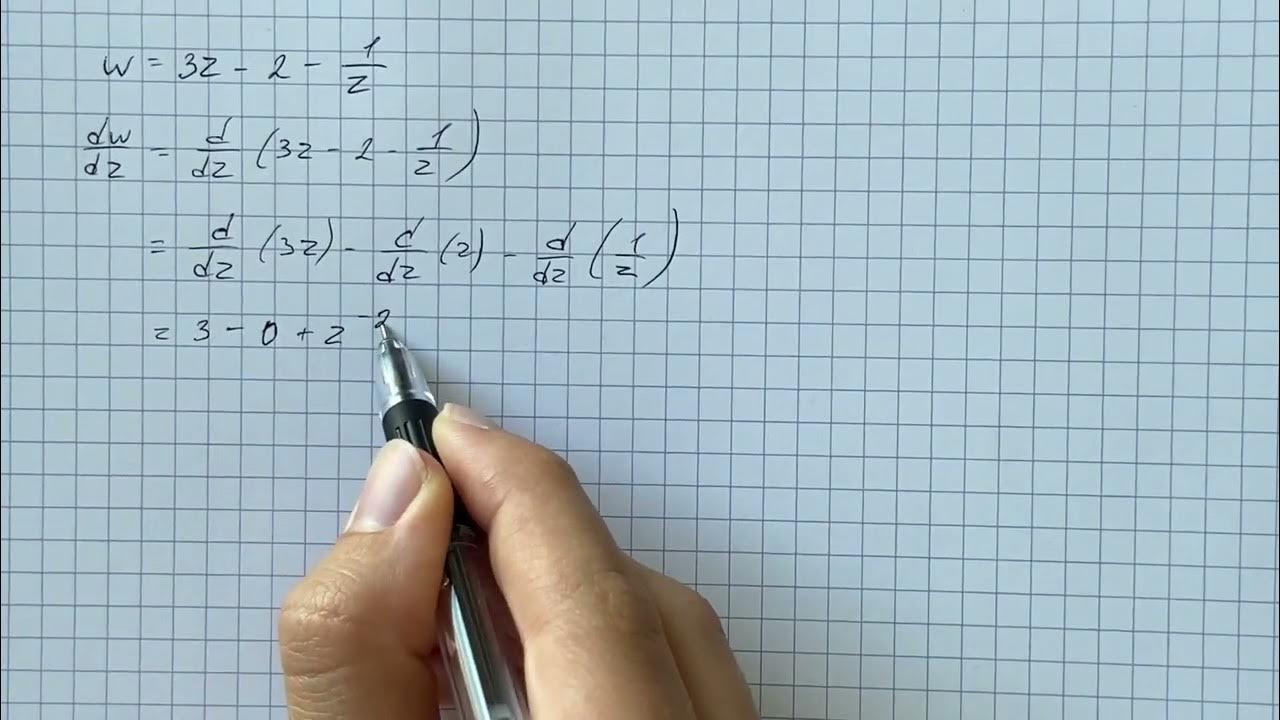 w = 3z - 2 - 1/z
dw/dz = d/dz (3z - 2 - 1/z)
= d/dz (3z) - d/dz (2) - d/dz (1/z)
= 3 - 0 + z^-2